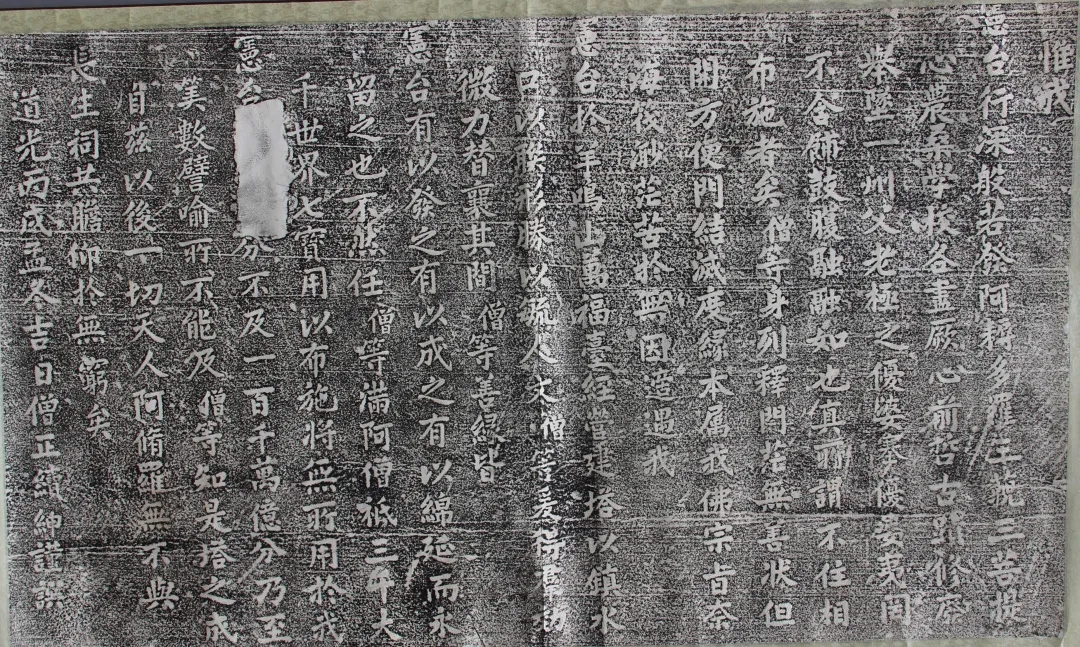 惟我
憲台行深般若發阿耨多羅三藐三菩提
心農桑學校各盡厥心前哲古蹟修廢
舉墜一州父老極之優婆塞優婆夷罔
不含餔鼓腹融融如也真所謂不住相
布施者矣僧等身列釋門茫無善狀但
開方便門結滅度緣本屬我佛宗旨奈
海筏渺茫苦於無因遭遇我
憲台於羊鳴山萬福臺經營建塔以鎮水
口以 形勝以 人文僧等爰得
微力替襄其間僧等善緣皆
憲台有以發之有以成之有以綿延而永
留之也不然任僧等滿阿僧祇三千大
千世界七寶用以布施將無所用於我
憲台 分不及一百千萬億分乃至
美數譬喻所不能及僧等知是塔之成
自茲以後一切天人阿脩羅無不與
長生祠共瞻仰於無窮矣
道光丙戌孟冬吉日僧正續紳謹譔